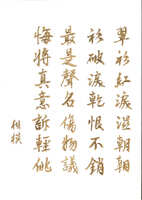 翠衫紅淚濕朝朝
衫破淚乾恨不銷
最是聲名傷物議
悔將真意訴輕佻